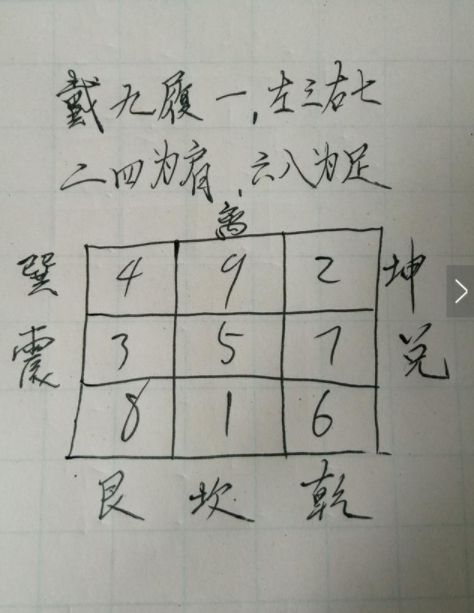 戴九履一,左三右七
二四为肩,六八为足
离
巽 4 9 2 坤
震 3 5 7 兑
8 1 6
艮 坎 乾